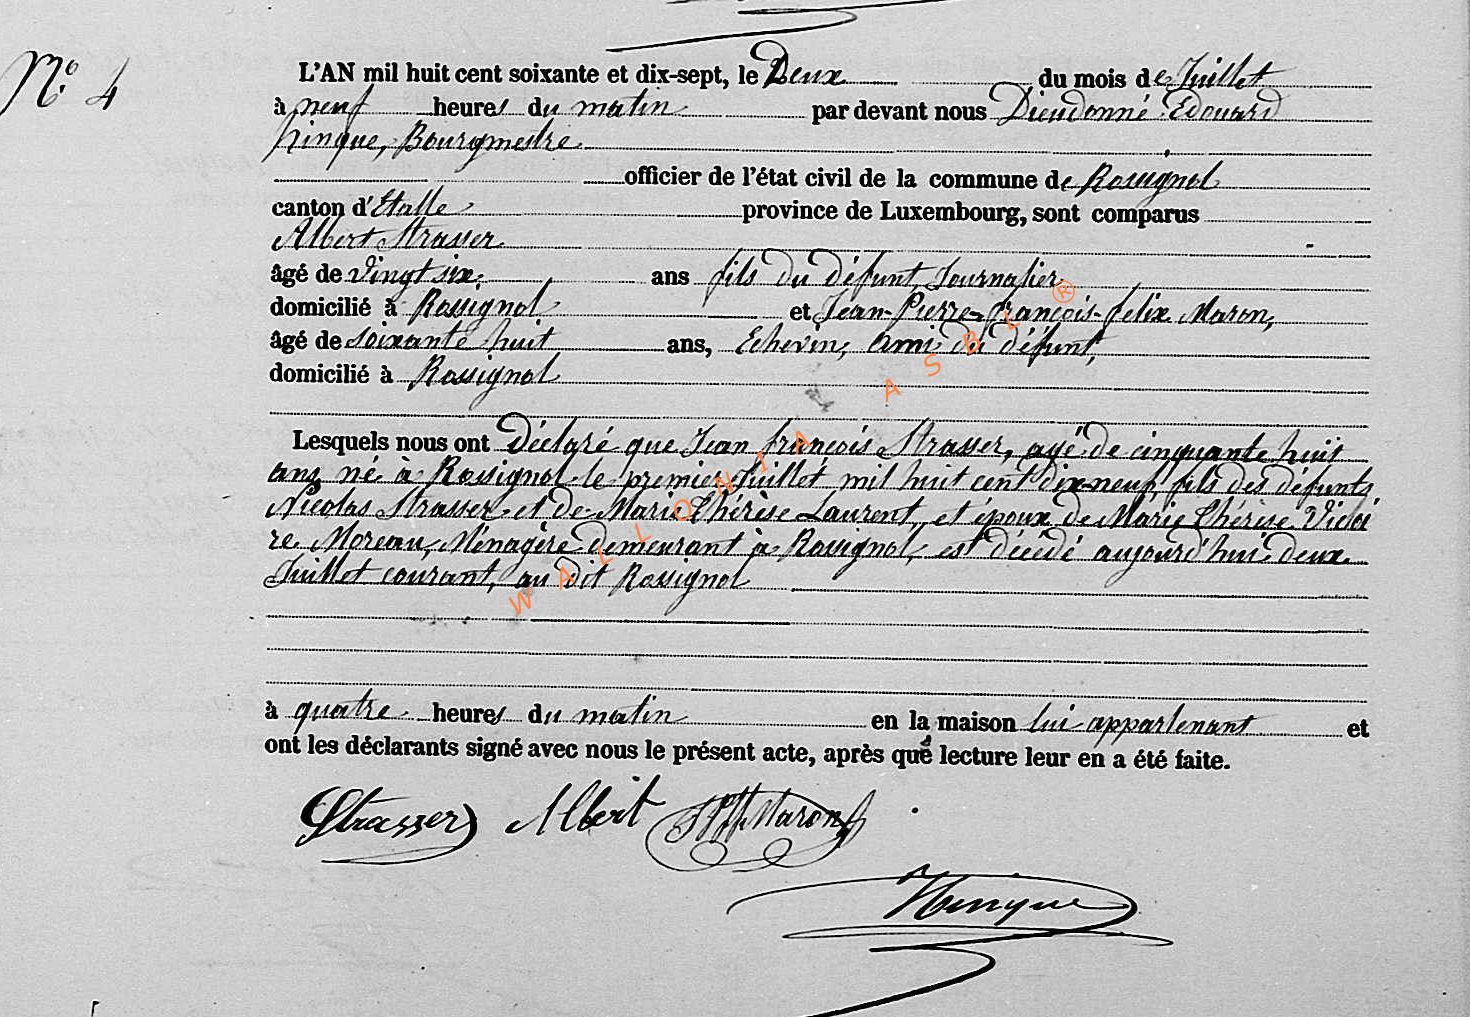 N° 4
L'AN mil huit cent soixante et dix-sept, le Deux du mois de Juillet
à neuf heures du matin par devant nous Dieudonné Edouard
Hinque, Bourgmestre
officier de l'état civil de la commune de Rossignol
canton d'Etalle province de Luxembourg, sont comparus
Albert Strasser
âgé de vingt six ans fils du défunt, Journalier
domicilié à Rossignol et Jean-Pierre-françois-felix Maron,
âgé de soixante huit ans, Echevin, ami du défunt,
domicilié à Rossignol
Lesquels nous ont Déclaré que Jean françois Strasser, agé de cinquante huit
ans né à Rossignol le premier Juillet mil huit cent dix-neuf, fils des défunts
Nicolas Strasser et de Marie Thérèse Laurent, et époux de Marie Thérèse Victoi
re Moreau, Ménagère demeurant à Rossignol, est décédé aujourd'hui deux
Juillet courant, au dit Rossignol
à quatre heures du matin en la maison lui appartenant et
ont les déclarants signé avec nous le présent acte, après que lecture leur en a été faite.
Strasser Albert Maron
Hinque
WALLONIA ASBL ®